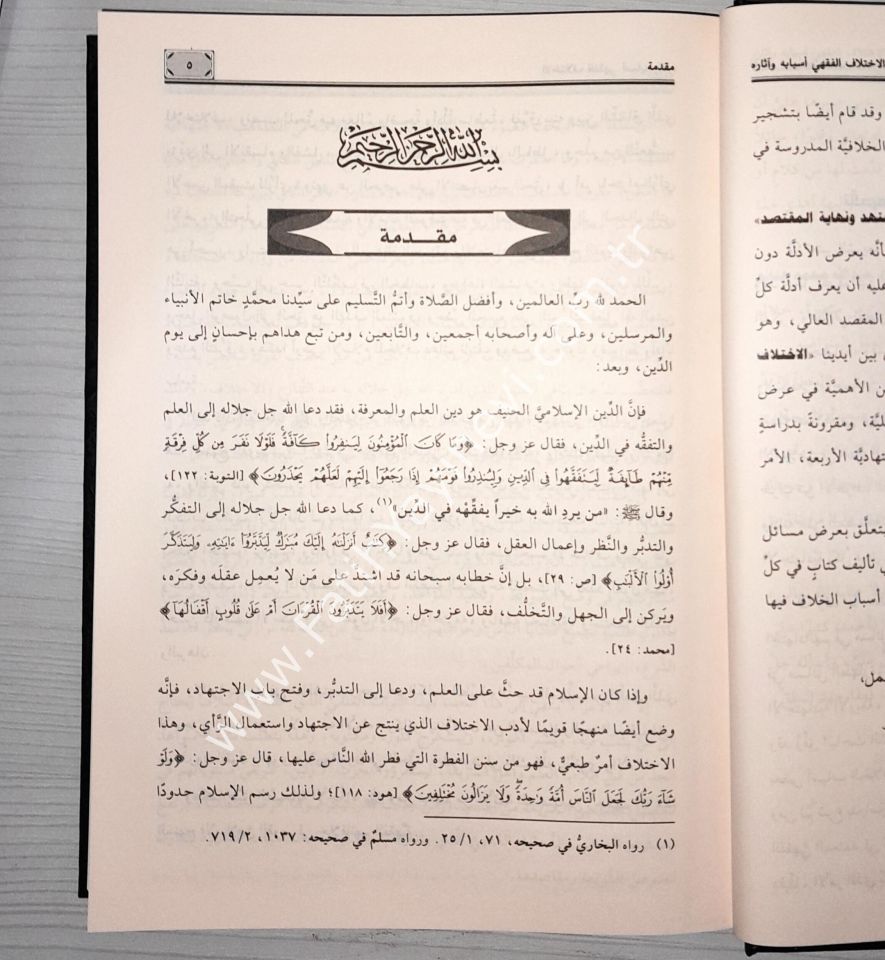 الاختلاف الفقهي أسبابه وآثاره
وقد قام أيضًا بتشجير
الخلافيَّة المدروسة في
ونهاية المقتصد»
بأنَّه يعرض الأدلَّة دون
عليه أن يعرف أدلَّة كلِّ
المقصد العالي، وهو
بين أيدينا «الاختلاف
من الأهميَّة في عرض
ومقرونةً بدراسةٍ
الأربعة، الأمر
يتعلَّق بعرض مسائل
تأليف كتابٍ في كلِّ
أسباب الخلاف فيها
مقدمة
٥
بسم الله الرحمن الرحيم
مقـدمة
الحمد لله ربِّ العالمين، وأفضل الصَّلاة وأتمُّ التَّسليم على سيِّدنا محمَّدٍ خاتم الأنبياء
والمرسلين، وعلى آله وأصحابه أجمعين، والتَّابعين، ومن تبع هداهم بإحسانٍ إلى يوم
الدِّين، وبعد:
فإنَّ الدِّين الإسلاميَّ الحنيف هو دين العلم والمعرفة، فقد دعا الله جل جلاله إلى العلم
والتفقُّه في الدِّين، فقال عز وجل: ﴿وَمَا كَانَ الْمُؤْمِنُونَ لِيَنفِرُوا كَافَّةً فَلَوْلَا نَفَرَ مِن كُلِّ فِرْقَةٍ
مِّنْهُمْ طَائِفَةٌ لِّيَتَفَقَّهُوا فِي الدِّينِ وَلِيُنذِرُوا قَوْمَهُمْ إِذَا رَجَعُوا إِلَيْهِمْ لَعَلَّهُمْ يَحْذَرُونَ﴾ [التوبة: ١٢٢]،
وقال ﷺ: «من يردِ الله به خيراً يفقِّهْه في الدِّين»(١)، كما دعا الله جل جلاله إلى التفكُّر
والتدبُّر والنَّظر وإعمال العقل، فقال عز وجل: ﴿كِتَٰبٌ أَنزَلْنَٰهُ إِلَيْكَ مُبَٰرَكٌ لِّيَدَّبَّرُوا ءَايَٰتِهِ وَلِيَتَذَكَّرَ
أُوْلُوا الْأَلْبَٰبِ﴾ [ص: ٢٩]، بل إنَّ خطابه سبحانه قد اشتدَّ على مَن لا يُعمِل عقلَه وفكره،
ويَركن إلى الجهل والتَّخلُّف، فقال عز وجل: ﴿أَفَلَا يَتَدَبَّرُونَ الْقُرْءَانَ أَمْ عَلَىٰ قُلُوبٍ أَقْفَالُهَا﴾
[محمد: ٢٤].
وإذا كان الإسلام قد حثَّ على العلم، ودعا إلى التدبُّر، وفتح باب الاجتهاد، فإنَّه
وضع أيضًا منهجًا قويمًا لأدب الاختلاف الذي ينتج عن الاجتهاد واستعمال الرَّأي، وهذا
الاختلاف أمرٌ طبعيٌّ، فهو من سنن الفطرة التي فطر الله النَّاس عليها، قال عز وجل: ﴿وَلَوْ
شَآءَ رَبُّكَ لَجَعَلَ النَّاسَ أُمَّةً وَٰحِدَةً وَلَا يَزَالُونَ مُخْتَلِفِينَ﴾ [هود: ١١٨]؛ ولذلك رسم الإسلام حدودًا
(١) رواه البخاريُّ في صحيحه، ٧١، ٢٥/١. ورواه مسلمٌ في صحيحه: ١٠٣٧، ٧١٩/٢.
www.Fatihyayinevi.com.tr